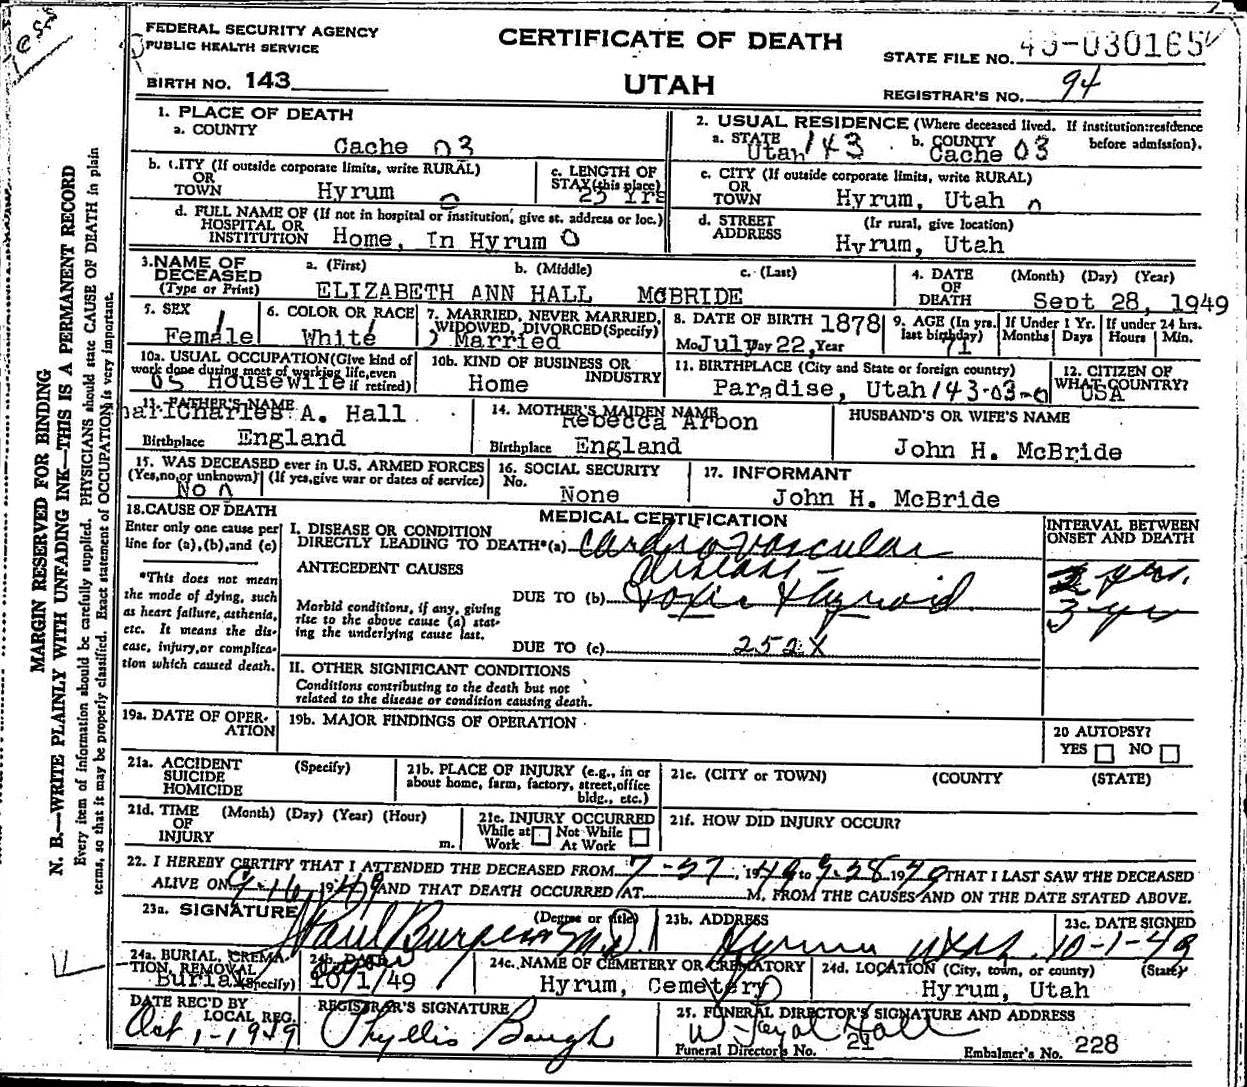 FEDERAL SECURITY AGENCY
PUBLIC HEALTH SERVICE
CERTIFICATE OF DEATH
STATE FILE NO. 49-030165
BIRTH NO. 143
UTAH
REGISTRAR'S NO. 94
MARGIN RESERVED FOR BINDING
N. B.—WRITE PLAINLY WITH UNFADING INK—THIS IS A PERMANENT RECORD
Every item of information should be carefully supplied. PHYSICIANS should state CAUSE OF DEATH in plain
terms, so that it may be properly classified. Exact statement of OCCUPATION is very important.
1. PLACE OF DEATH
a. COUNTY
Cache 03
2. USUAL RESIDENCE (Where deceased lived. If institution:residence
before admission).
a. STATE
Utah 143
b. COUNTY
Cache 03
b. CITY (If outside corporate limits, write RURAL)
OR
TOWN Hyrum 0
c. LENGTH OF
STAY(this place)
25 Yrs
c. CITY (If outside corporate limits, write RURAL)
OR
TOWN Hyrum, Utah 0
d. FULL NAME OF (If not in hospital or institution, give st. address or loc.)
HOSPITAL OR
INSTITUTION Home, In Hyrum 0
d. STREET (If rural, give location)
ADDRESS Hyrum, Utah
3. NAME OF DECEASED
(Type or Print)
a. (First) b. (Middle) c. (Last)
ELIZABETH ANN HALL McBRIDE
4. DATE OF DEATH
(Month) (Day) (Year)
Sept 28, 1949
5. SEX
Female
6. COLOR OR RACE
White
7. MARRIED, NEVER MARRIED,
WIDOWED, DIVORCED(Specify)
Married
8. DATE OF BIRTH 1878
Mo July Day 22, Year
9. AGE (In yrs.
last birthday)
71
If Under 1 Yr.
Months Days
If under 24 hrs.
Hours Min.
10a. USUAL OCCUPATION(Give kind of
work done during most of working life,even
if retired)
05 Housewife
10b. KIND OF BUSINESS OR
INDUSTRY
Home
11. BIRTHPLACE (City and State or foreign country)
Paradise, Utah 143-03-0
12. CITIZEN OF
WHAT COUNTRY?
USA
13. FATHER'S NAME
Charles A. Hall
Birthplace England
14. MOTHER'S MAIDEN NAME
Rebecca Arbon
Birthplace England
HUSBAND'S OR WIFE'S NAME
John H. McBride
15. WAS DECEASED ever in U.S. ARMED FORCES
(Yes,no,or unknown) (If yes,give war or dates of service)
No 0
16. SOCIAL SECURITY
No.
None
17. INFORMANT
John H. McBride
18. CAUSE OF DEATH
Enter only one cause per
line for (a),(b),and (c)
*This does not mean
the mode of dying, such
as heart failure, asthenia,
etc. It means the dis-
ease, injury,or complica-
tion which caused death.
MEDICAL CERTIFICATION
INTERVAL BETWEEN
ONSET AND DEATH
I. DISEASE OR CONDITION
DIRECTLY LEADING TO DEATH*(a) Cardio vascular
disease -
2 yrs.
ANTECEDENT CAUSES
Morbid conditions, if any, giving
rise to the above cause (a) stat-
ing the underlying cause last.
DUE TO (b) Toxic thyroid
3 yrs
DUE TO (c) 252X
II. OTHER SIGNIFICANT CONDITIONS
Conditions contributing to the death but not
related to the disease or condition causing death.
19a. DATE OF OPER-
ATION
19b. MAJOR FINDINGS OF OPERATION
20 AUTOPSY?
YES NO
21a. ACCIDENT
SUICIDE
HOMICIDE
(Specify)
21b. PLACE OF INJURY (e.g., in or
about home, farm, factory, street,office
bldg., etc.)
21c. (CITY or TOWN) (COUNTY (STATE)
21d. TIME (Month) (Day) (Year) (Hour)
OF
INJURY m.
21e. INJURY OCCURRED
While at Work Not While At Work
21f. HOW DID INJURY OCCUR?
22. I HEREBY CERTIFY THAT I ATTENDED THE DECEASED FROM 7-27, 1949 to 9-28 1949 THAT I LAST SAW THE DECEASED
ALIVE ON 9-16, 1949 AND THAT DEATH OCCURRED AT M. FROM THE CAUSES AND ON THE DATE STATED ABOVE.
23a. SIGNATURE (Degree or title)
Paul Burgess M.D.
23b. ADDRESS
Hyrum Utah
23c. DATE SIGNED
10-1-49
24a. BURIAL, CREMA-
TION, REMOVAL
(Specify)
Burial
24b. DATE
10/1/49
24c. NAME OF CEMETERY OR CREMATORY
Hyrum, Cemetery
24d. LOCATION (City, town, or county) (State)
Hyrum, Utah
DATE REC'D BY
LOCAL REG.
Oct 1-1949
REGISTRAR'S SIGNATURE
Phyllis Baugh
25. FUNERAL DIRECTOR'S SIGNATURE AND ADDRESS
W. Loyal Hall
Funeral Director's No. 21
Embalmer's No. 228